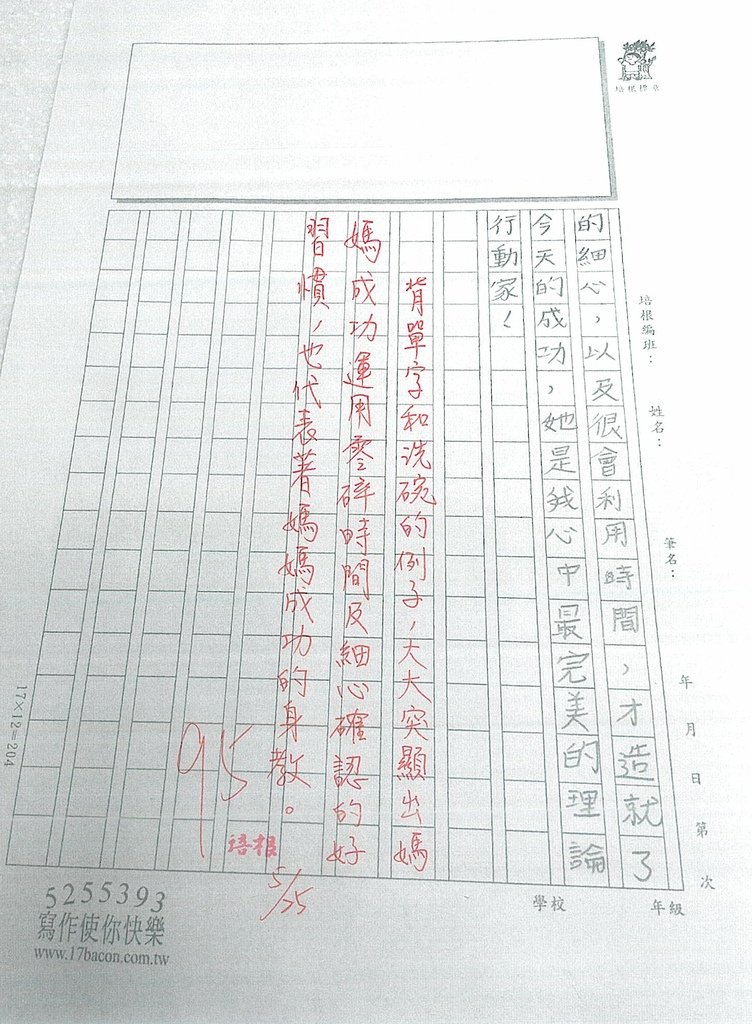 培根標章
培根編班：
姓名：
筆名：
年 月 日 第 次
的細心，以及很會利用時間，才造就了
今天的成功，她是我心中最完美的理論
行動家！
背單字和洗碗的例子，大大突顯出媽
媽成功運用零碎時間及細心確認的好
習慣，也代表著媽媽成功的身教。
95
培根
5/25
學校 年級
17×12=204
5255393
寫作使你快樂
www.17bacon.com.tw